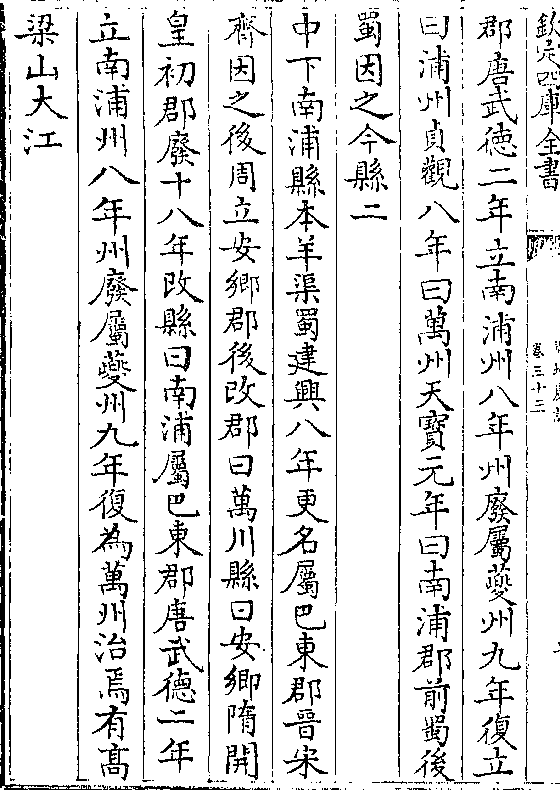 欽定四庫全書
卷三十三
郡唐武德二年立南浦州八年州廢屬夔州九年復立
曰浦州貞觀八年曰萬州天寶元年曰南浦郡前蜀後
蜀因之今縣二
中下南浦縣本羊渠蜀建興八年更名屬巴東郡晉宋
齊因之後周立安鄉郡後改郡曰萬川縣曰安鄉隋開
皇初郡廢十八年改縣曰南浦屬巴東郡唐武德二年
立南浦州八年州廢屬夔州九年復為萬州治焉有髙
梁山大江